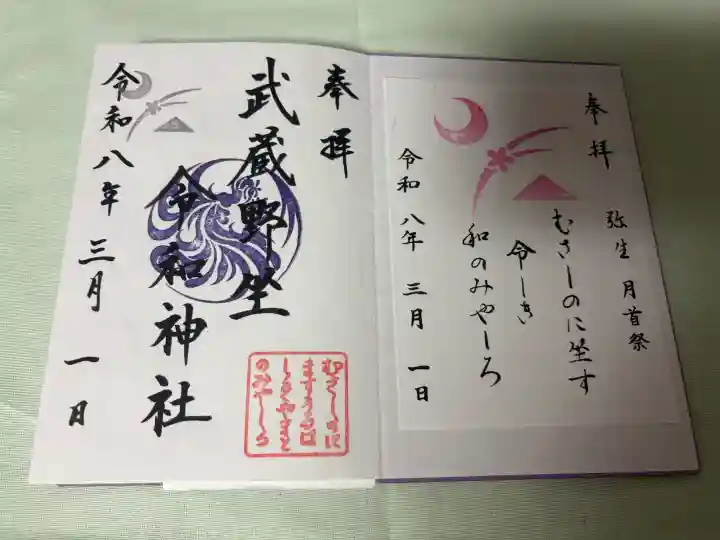 奉拝
弥生 月首祭
むさしのに坐す
令しき
和のみやしろ
令和 八年 三月 一日
奉拝
武蔵野坐
令和神社
令和八年 三月 一日
むさしのに
ますうる
しきやまと
のみやしろ